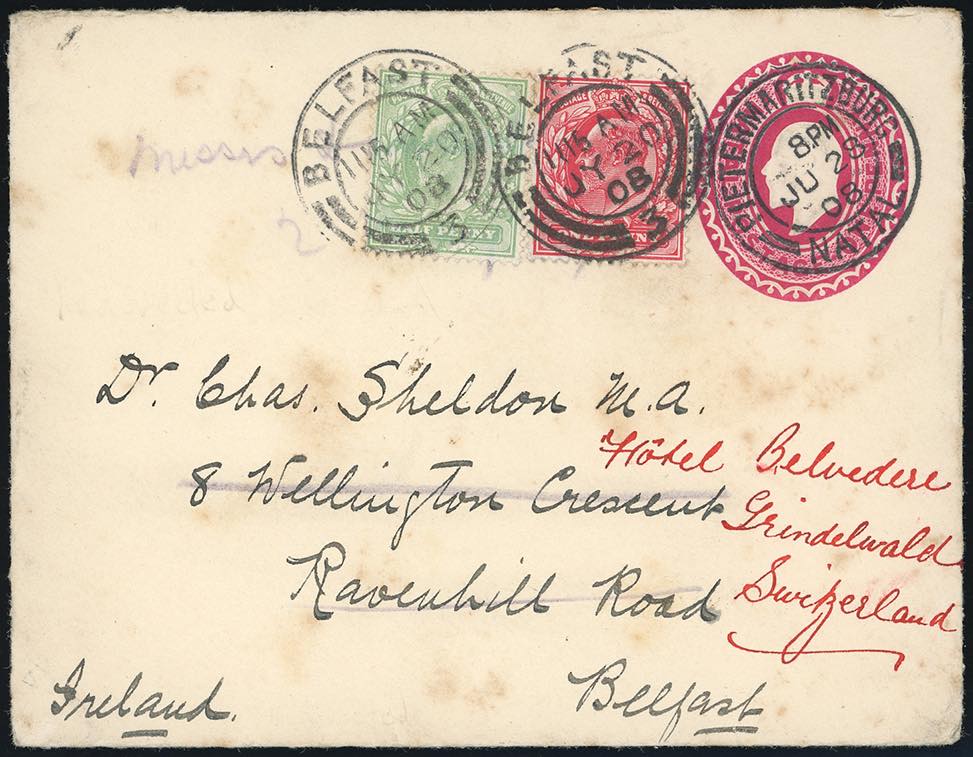 BELFAST
11 15 AM
JY 20
08
3
HALF PENNY
BELFAST
11 15 AM
JY 20
08
3
PIETERMARITZBURG
8 PM
JU 28
08
NATAL
Messrs
2
Dr. Chas. Sheldon M.A.
8 Wellington Crescent
Ravenhill Road
Belfast
Ireland.
Hôtel Belvedere
Grindelwald
Switzerland